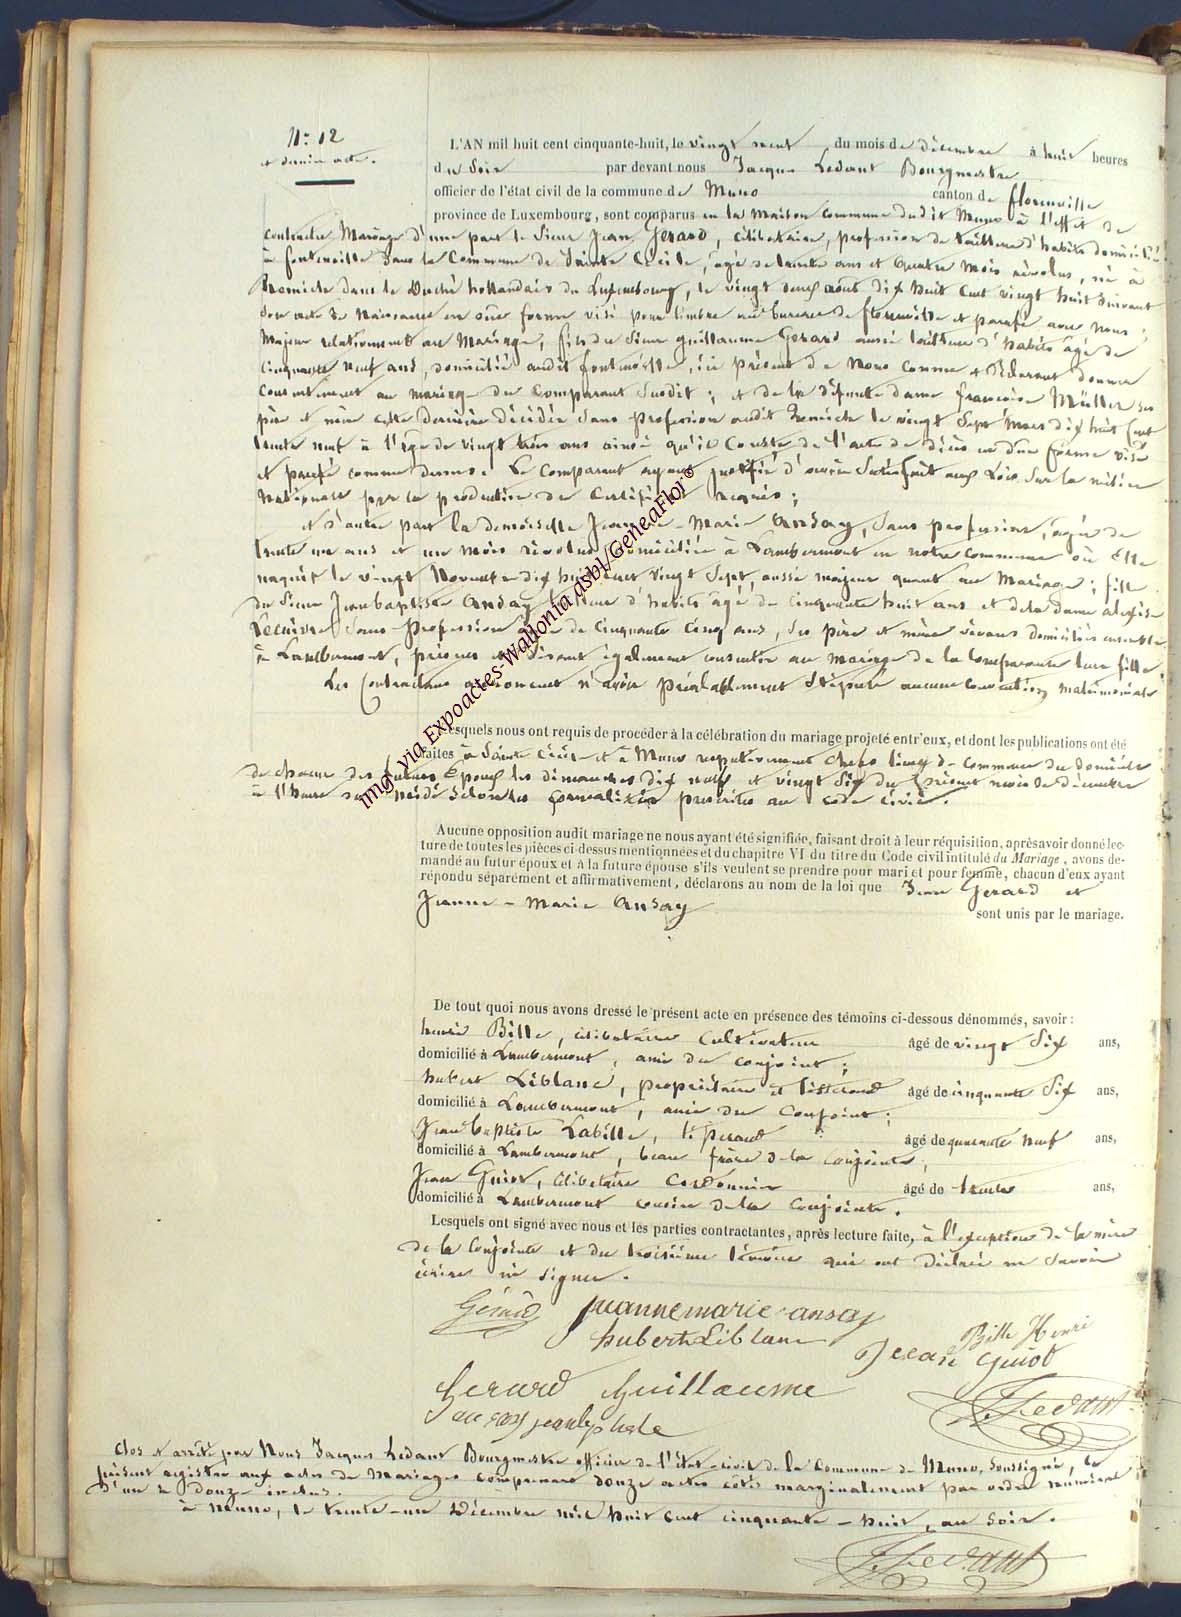 N° 12
et dernier acte.
L'AN mil huit cent cinquante-huit, le vingt neuf du mois de décembre à huit heures
du Soir par devant nous Jacques Ledant Bourgmestre
officier de l'état civil de la commune de Muno canton de florenville
province de Luxembourg, sont comparus en la maison commune dudit Muno à l'effet de
contracter Mariage d'une part le Sieur Jean Gerard, célibataire, profession de tailleur d'habits domicilié
à fontenoille dans la Commune de Sainte Cécile, âgé de trente ans et quatre mois révolus, né à
Remich dans le Duché hollandais du Luxembourg, le vingt août dix huit cent vingt huit suivant
son acte de Naissance en due forme visé pour timbre au bureau de florenville et parafé avec nous;
Majeur relativement au Mariage, fils du Sieur guillaume Gerard aussi tailleur d'habits âgé de
cinquante neuf ans, domicilié audit fontenoille, ici présent de Nous connu et déclarant donner
consentement au mariage du comparant susdit; et de la défunte dame françoise Müller ses
père et mère cette dernière décédée sans profession audit Remich le vingt sept Mars dix huit cent
trente neuf à l'âge de vingt trois ans ainsi qu'il conste de l'acte de décès en due forme visé
et parafé comme dessus. Le Comparant ayant justifié d'avoir Satisfait aux Lois sur la milice
Nationale par la production du Certificat requis;
et d'autre part la demoiselle Jeanne-Marie Ansay, Sans profession, âgée de
trente un ans et un mois révolus domiciliée à Lambermont en notre commune où Elle
naquit le vingt Novembre dix huit cent vingt Sept, aussi majeure quant au Mariage; fille
du Sieur Jean baptiste Ansay tailleur d'habits âgé de cinquante huit ans et de la dame
Sans Profession âgée de cinquante cinq ans, ses père et mère vivans domiciliés ensemble
à Lambermont, présens et disant également consentir au mariage de la Comparante leur fille.
Les Contractans affirment n'avoir préalablement Stipulé aucune convention matrimoniale.
Lesquels nous ont requis de procéder à la célébration du mariage projeté entr'eux, et dont les publications ont été
faites à Sainte Cécile et à Muno respectivement chefs lieux de Commune du domicile
de chacun des futurs Epoux les dimanches dix neuf et vingt Six du présent mois de décembre
à l'heure de midi selon les formalités prescrites au code civil.
Aucune opposition audit mariage ne nous ayant été signifiée, faisant droit à leur réquisition, après avoir donné lec-
ture de toutes les pièces ci-dessus mentionnées et du chapitre VI du titre du Code civil intitulé du Mariage, avons de-
mandé au futur époux et à la future épouse s'ils veulent se prendre pour mari et pour femme, chacun d'eux ayant
répondu séparément et affirmativement, déclarons au nom de la loi que Jean Gerard et
Jeanne-Marie Ansay
sont unis par le mariage.
De tout quoi nous avons dressé le présent acte en présence des témoins ci-dessous dénommés, savoir:
henri Bille, célibataire Cultivateur âgé de vingt Six ans,
domicilié à Lambermont, ami du conjoint;
hubert Liblanc, propriétaire et tisserand âgé de cinquante Six ans,
domicilié à Lambermont, ami du Conjoint;
Jean-baptiste Labille, tisserand âgé de quarante neuf ans,
domicilié à Lambermont, beau frère de la conjointe;
Jean Guiot, célibataire Cordonnier âgé de trente ans,
domicilié à Lambermont cousin de la Conjointe.
Lesquels ont signé avec nous et les parties contractantes, après lecture faite, à l'exception de la mère
de la Conjointe et du troisième témoin qui ont déclaré ne savoir
écrire ni signer.
Gérard jeanne marie ansay
hubert Liblanc Bille Henri
Jean Guiot
Gerard Guillaume
J Ledant
ansay jean baptiste
Clos et arrêté par Nous Jacques Ledant Bourgmestre officier de l'état-civil de la Commune de Muno, Soussigné, le
présent registre aux actes de Mariages comprenant douze actes côtés marginalement par ordre numéral
d'un à douze inclus.
à Muno, le trente-un Décembre mil huit cent cinquante-huit, au Soir.
J Ledant
img via Expoactes-Wallonia asbl/GeneaFlor®